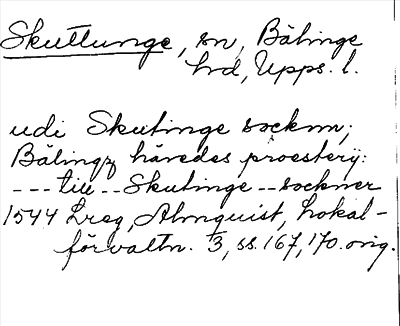 Skuttunge, sn, Bälinge
hrd, Upps. l.
udi Skutinge socknn;
Bälingz häredes proestery:
--- till -- Skutinge -- sockner
1544 Lreg, Almquist, Lokal-
förvaltn. 3, ss. 167, 170. orig.